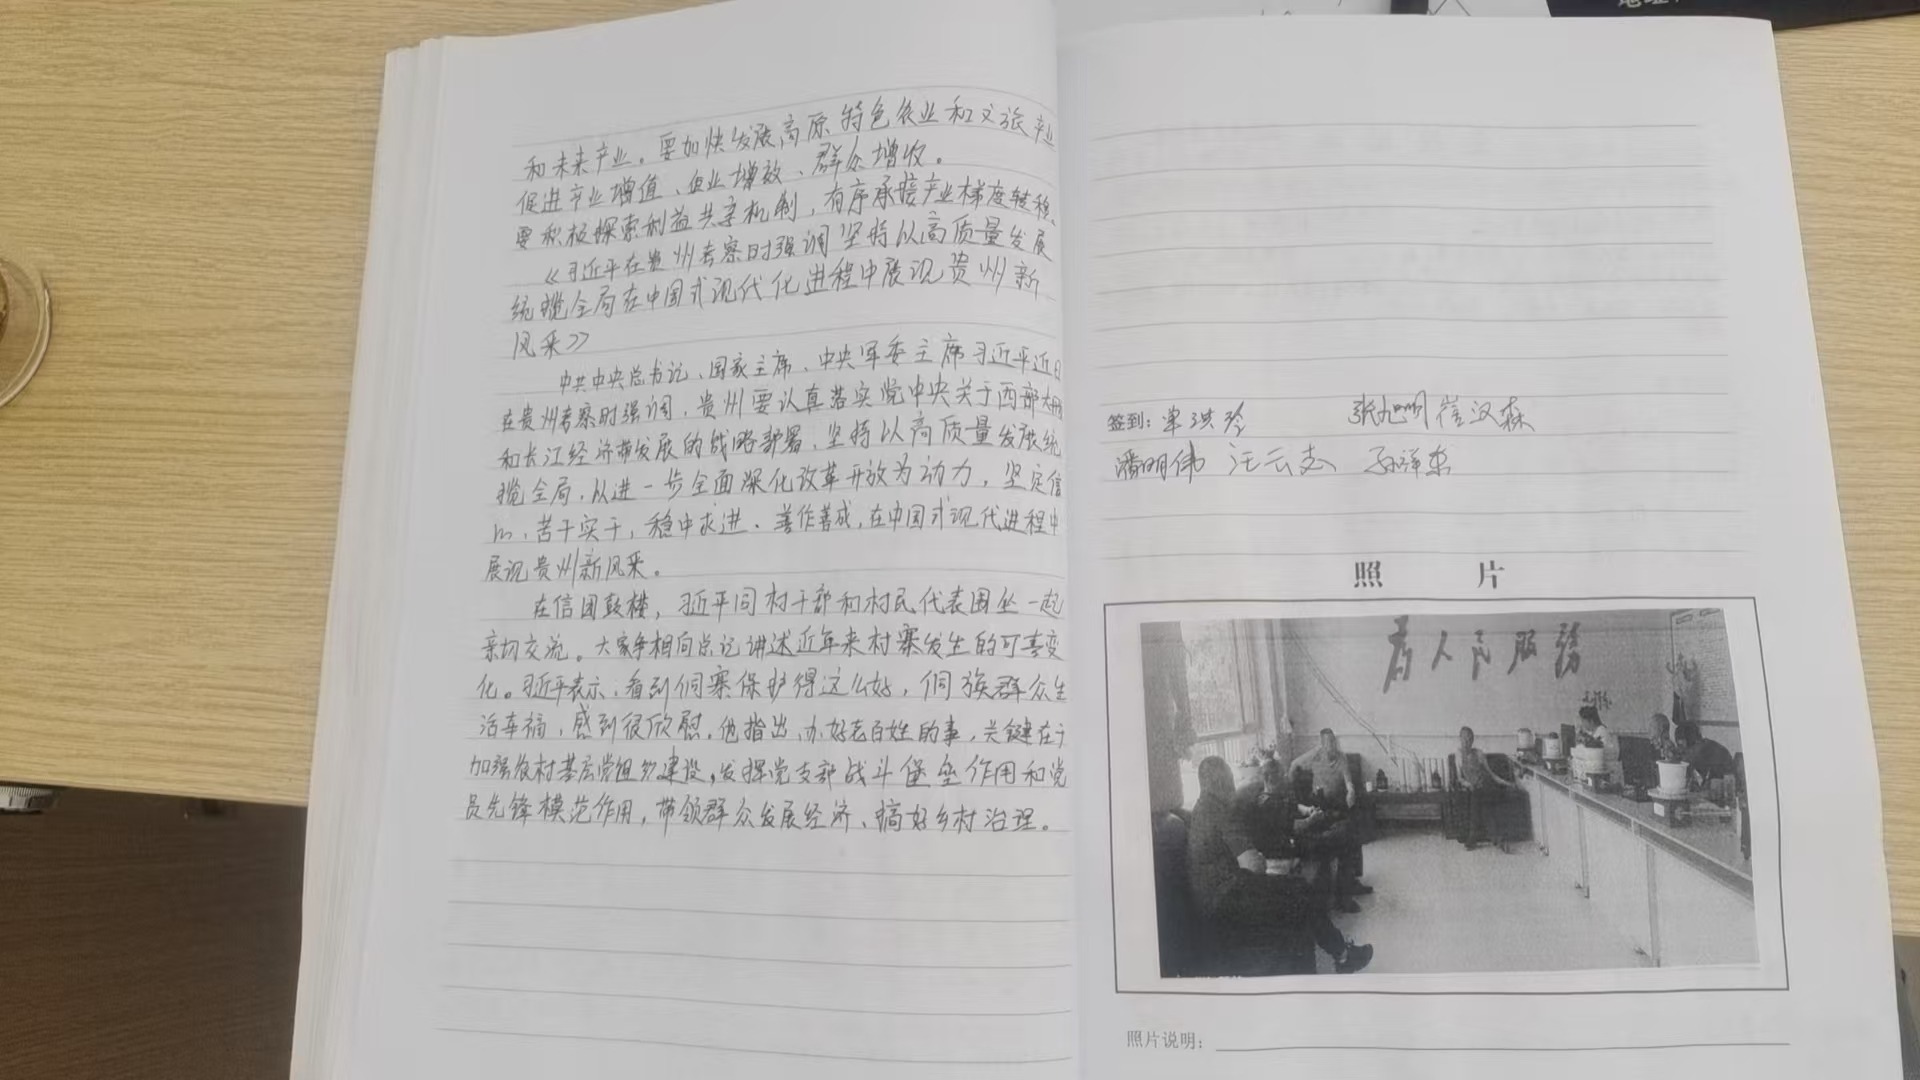 和未来产业。要加快发展高原特色农业和文旅产业
促进产业增值、企业增效、群众增收。
要积极探索利益共享机制，有序承接产业梯度转移。
《习近平在贵州考察时强调坚持以高质量发展
统揽全局在中国式现代化进程中展现贵州新
风采》
中共中央总书记、国家主席、中央军委主席习近平近日
在贵州考察时强调，贵州要认真落实党中央关于西部大开
和长江经济带发展的战略部署，坚持以高质量发展统
揽全局，从进一步全面深化改革开放为动力，坚定信
心，苦干实干，稳中求进、善作善成，在中国式现代进程中
展现贵州新风采。
在信团鼓楼，习近平同村干部和村民代表围坐一起
亲切交流。大家争相向总记讲述近年来村寨发生的可喜变
化。习近平表示，看到侗寨保护得这么好，侗族群众生
活幸福，感到很欣慰。他指出，办好老百姓的事，关键在于
加强农村基层党组织建设，发挥党支部战斗堡垒作用和党
员先锋模范作用，带领群众发展经济、搞好乡村治理。
签到：单洪玲 张旭明 崔汉森
潘明伟 汪云志 孙泽东
照 片
为人民服务
照片说明：